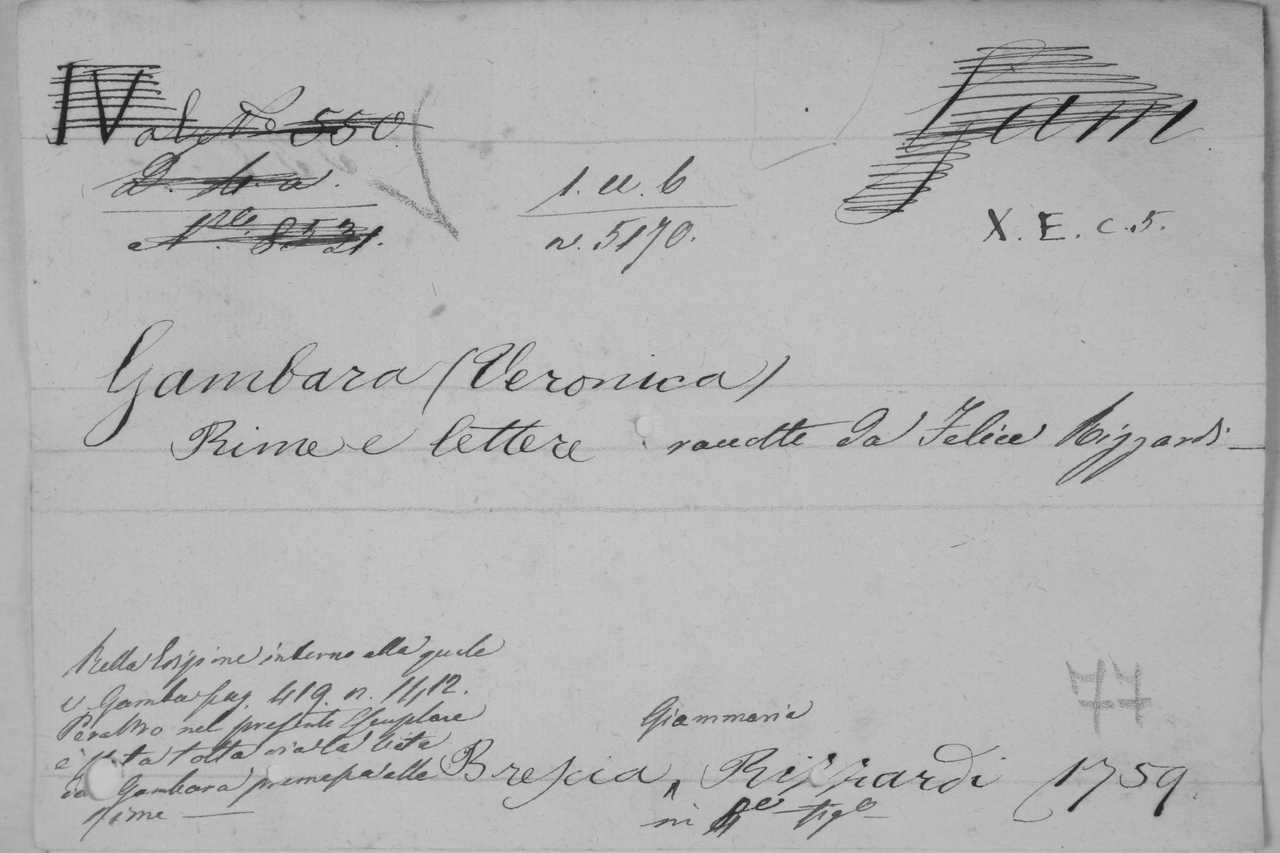 IV al N.º 550.
D. 4. a.
N.re 8531.
1. a. b
n. 5170.
Gam
X. E. c. 5.
Gambara (Veronica)
Rime e lettere raccolte da Felice Rizzardi
Bella edizione intorno alla quale
v. Gamba pag. 419. n. 1412.
Peraltro nel presente Esemplare
è stata tolta via la vita
della Gambara premessa alle
rime
Giammaria
Brescia, Rizzardi 1759.
in 4.º fig.º
77